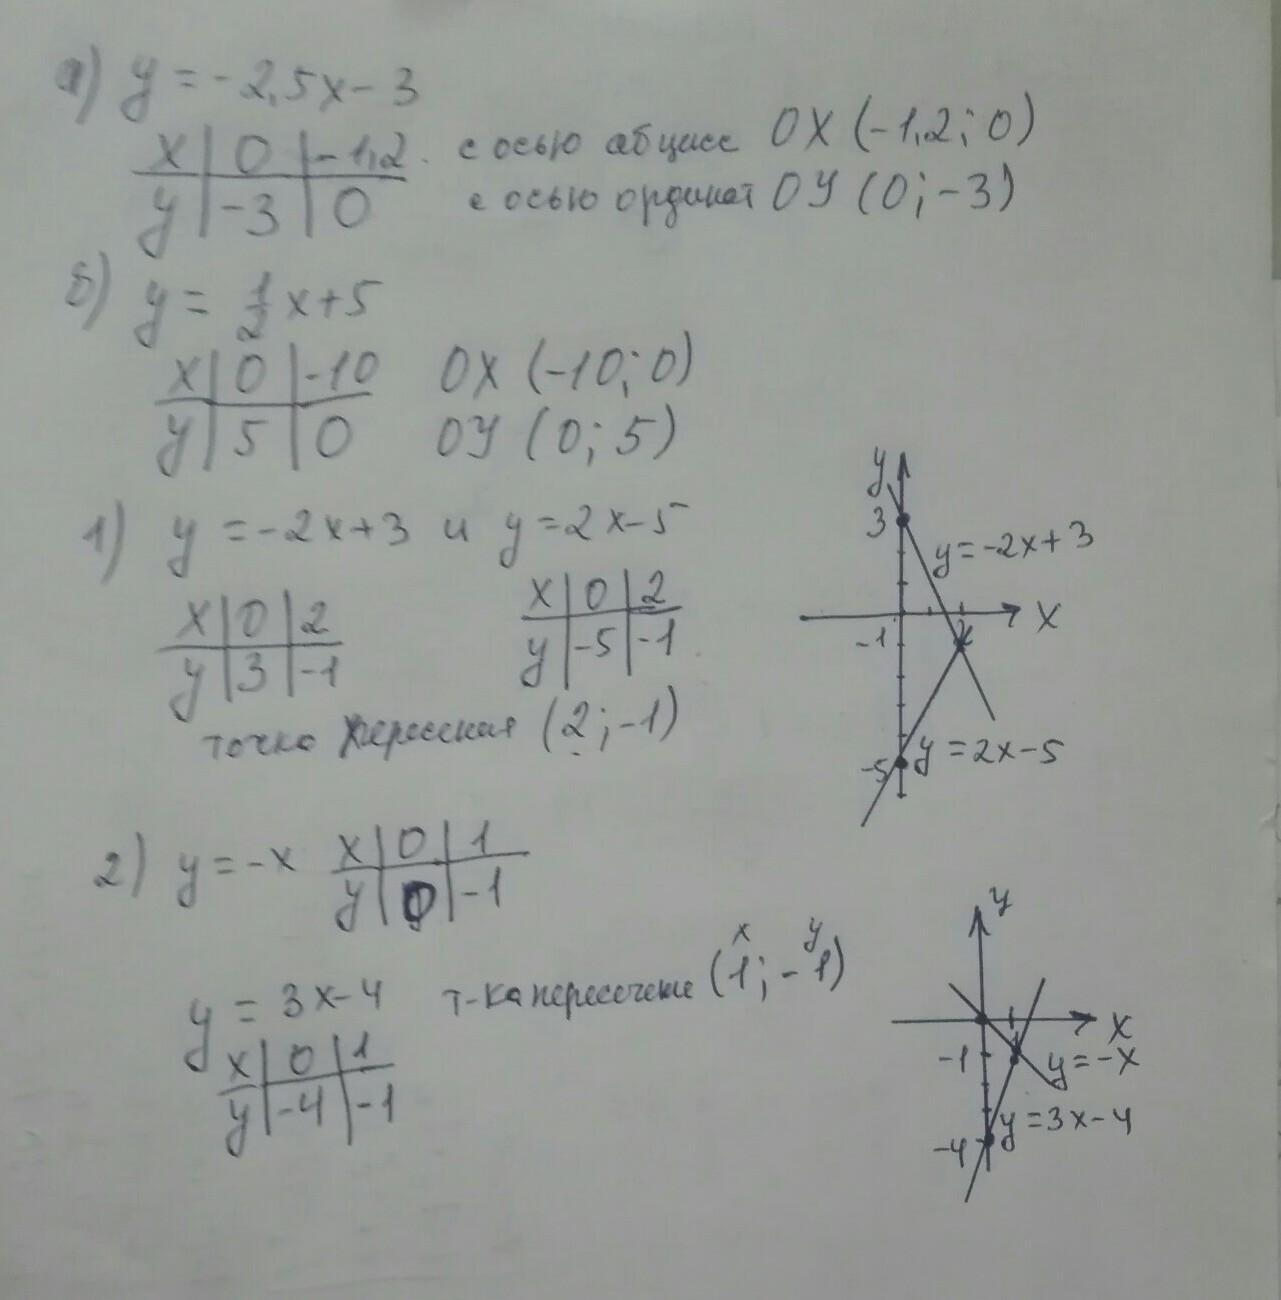 а) y = -2,5x - 3
x | 0 | -1,2
y | -3 | 0
с осью абцисс OX (-1,2; 0)
с осью ординат ОУ (0; -3)
б) y = 1/2 x + 5
x | 0 | -10
y | 5 | 0
OX (-10; 0)
ОУ (0; 5)
1) y = -2x + 3 и y = 2x - 5
x | 0 | 2
y | 3 | -1
x | 0 | 2
y | -5 | -1
точка (2; -1)
y
3
y = -2x + 3
x
-1
-5
y = 2x - 5
2) y = -x
x | 0 | 1
y | 0 | -1
y = 3x - 4
x | 0 | 1
y | -4 | -1
x y
т-ка пересечение (1; -1)
y
1
x
-1
y = -x
y = 3x - 4
-4